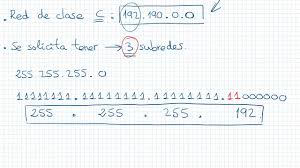 · Red de clase C : 192.190.0.0
· Se solicita tener → 3 subredes.
255 255.255.0
11111111.11111111.11111111.11000000
255 . 255 . 255 . 192